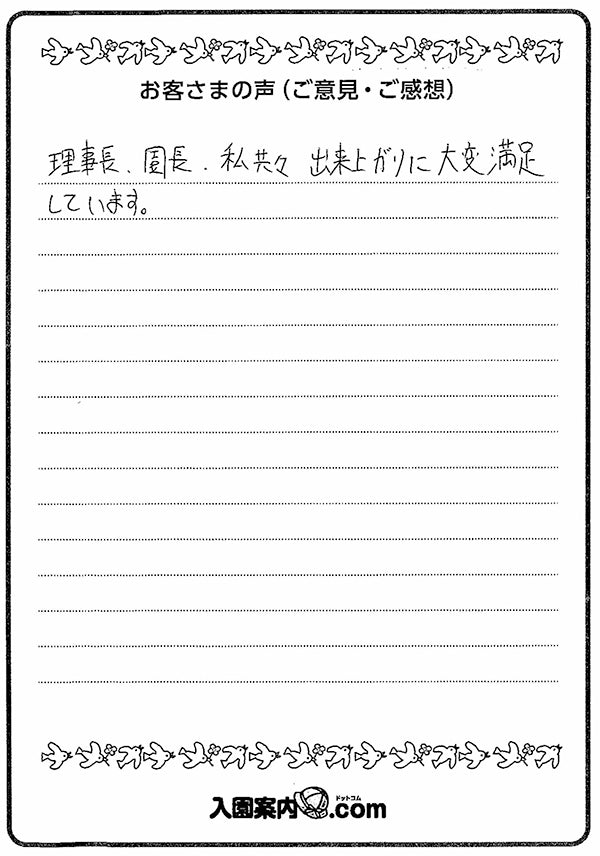 お客さまの声(ご意見・ご感想)
理事長、園長、私共々 出来上がりに大変満足
しています。
ドットコム
入園案内.com